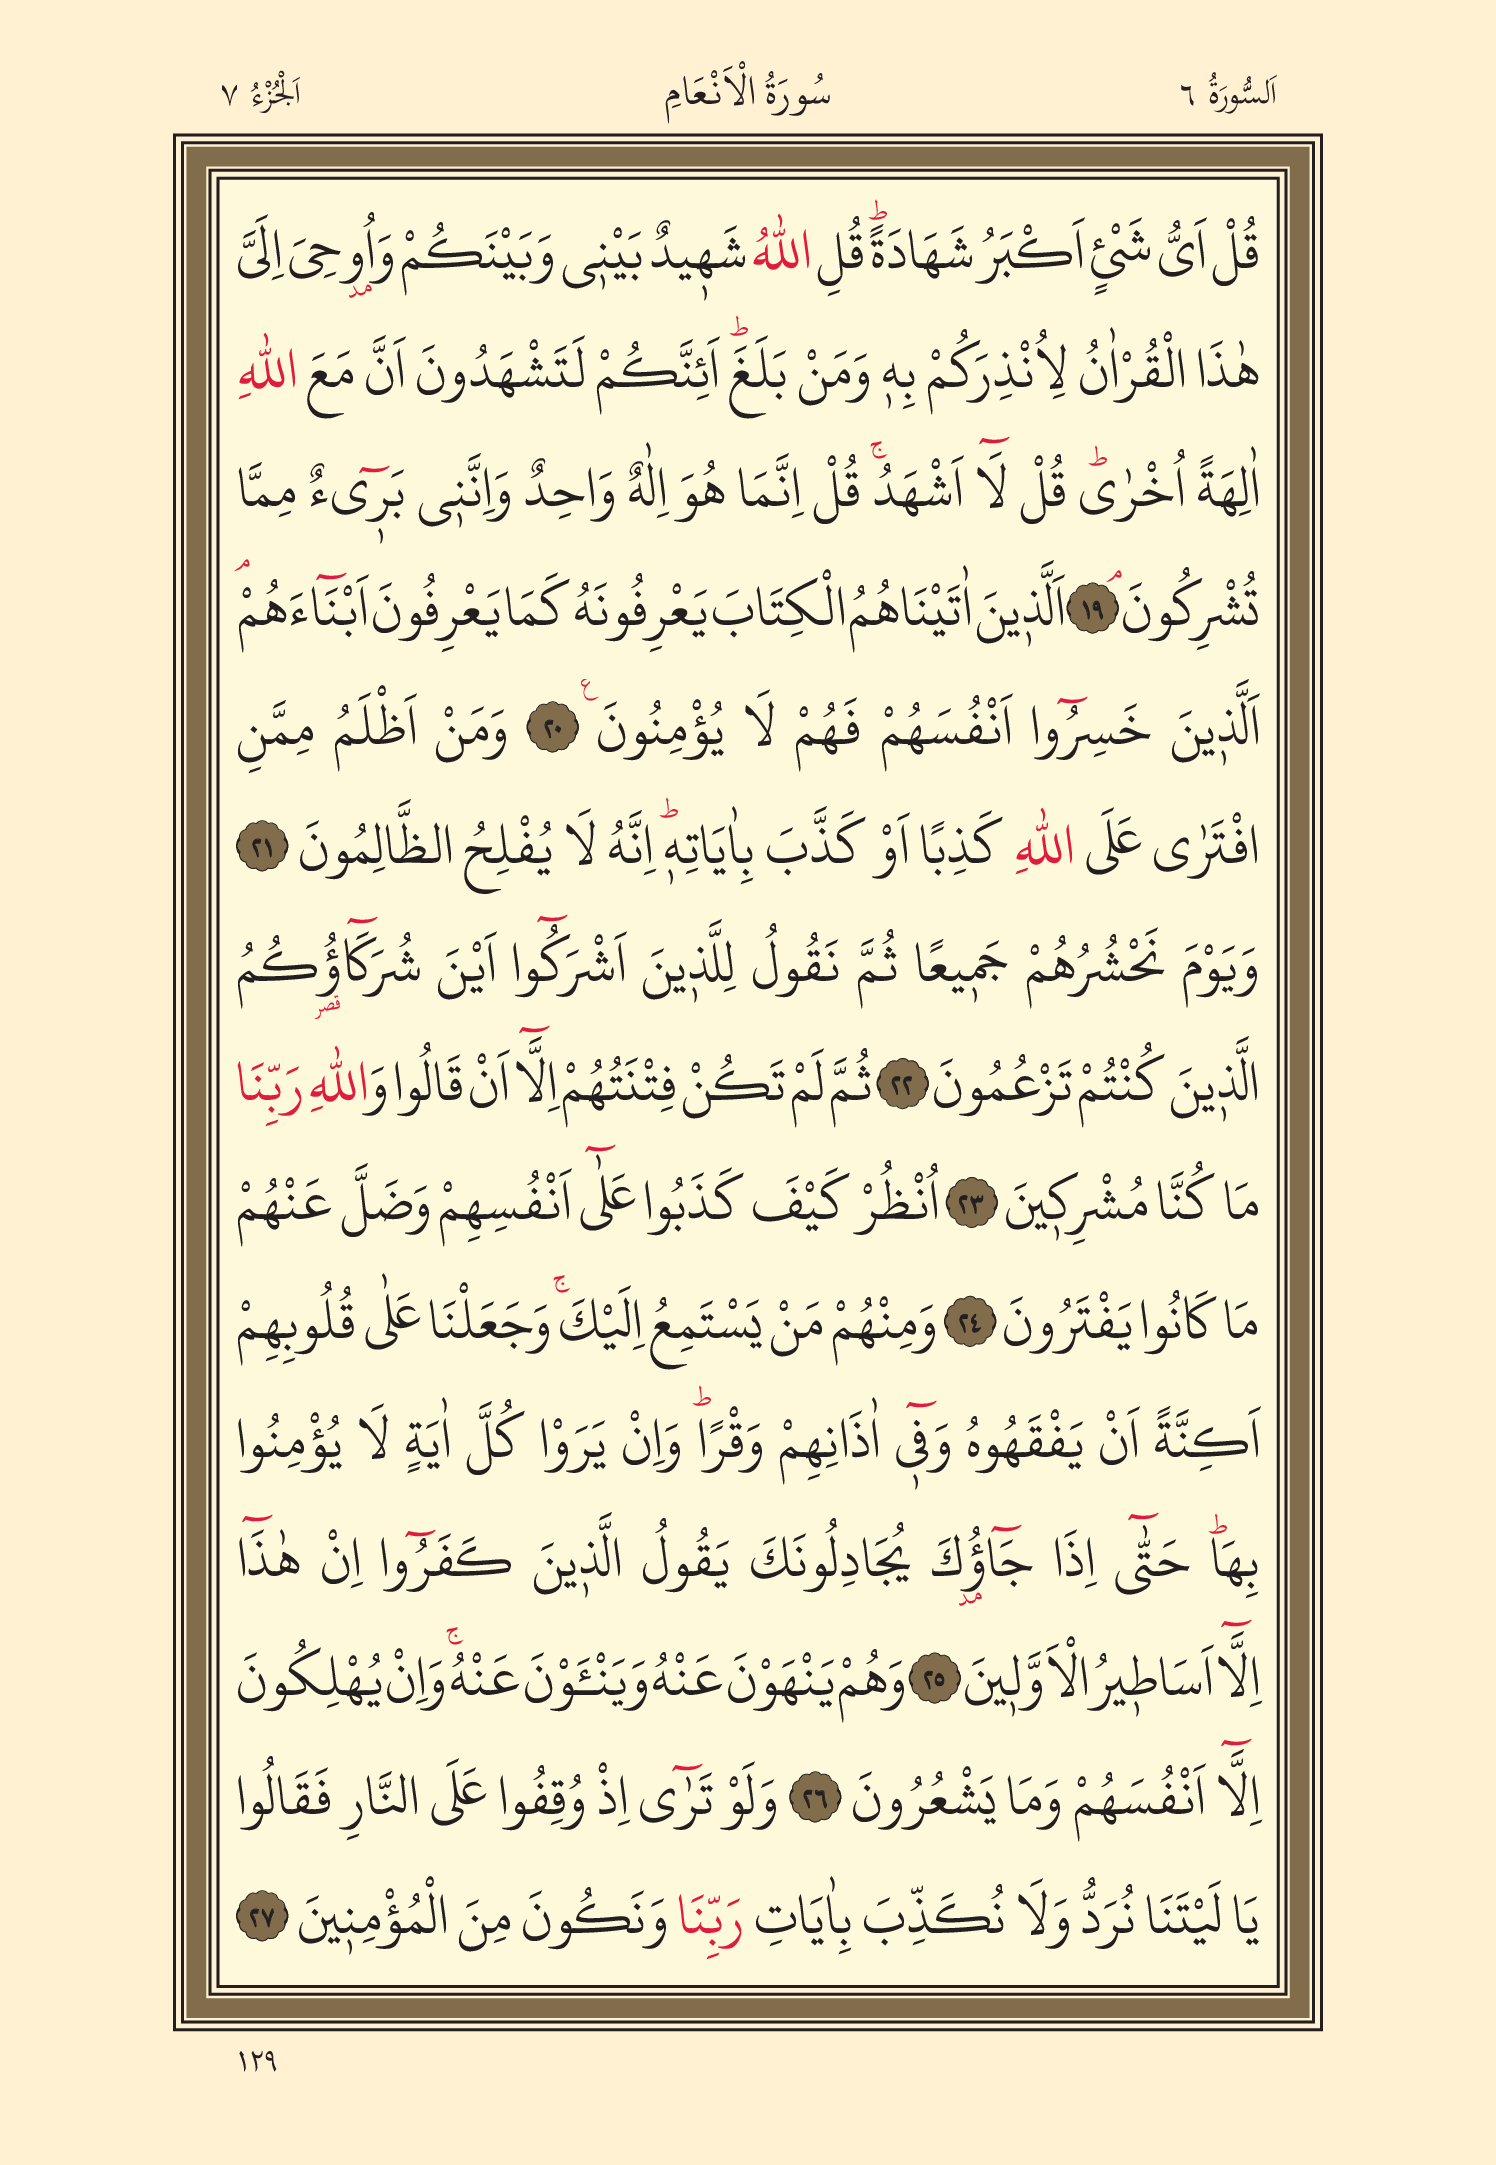 اَلسُّورَةُ ٦ سُورَةُ الْاَنْعَامِ اَلْجُزْءُ ٧
قُلْ اَىُّ شَىْءٍ اَكْبَرُ شَهَادَةًۜ قُلِ اللّٰهُ شَهٖيدٌ بَيْنٖى وَبَيْنَكُمْ وَاُوحِىَ اِلَىَّ
هٰذَا الْقُرْاٰنُ لِاُنْذِرَكُمْ بِهٖ وَمَنْ بَلَغَۜ اَئِنَّكُمْ لَتَشْهَدُونَ اَنَّ مَعَ اللّٰهِ
اٰلِهَةً اُخْرٰىۜ قُلْ لَٓا اَشْهَدُۚ قُلْ اِنَّمَا هُوَ اِلٰهٌ وَاحِدٌ وَاِنَّنٖى بَرٖٓىءٌ مِمَّا
تُشْرِكُونَۢ ١٩ اَلَّذٖينَ اٰتَيْنَاهُمُ الْكِتَابَ يَعْرِفُونَهُ كَمَا يَعْرِفُونَ اَبْنَٓاءَهُمْۢ
اَلَّذٖينَ خَسِرُٓوا اَنْفُسَهُمْ فَهُمْ لَا يُؤْمِنُونَ ع ٢٠ وَمَنْ اَظْلَمُ مِمَّنِ
افْتَرٰى عَلَى اللّٰهِ كَذِبًا اَوْ كَذَّبَ بِاٰيَاتِهٖۜ اِنَّهُ لَا يُفْلِحُ الظَّالِمُونَ ٢١
وَيَوْمَ نَحْشُرُهُمْ جَمٖيعًا ثُمَّ نَقُولُ لِلَّذٖينَ اَشْرَكُٓوا اَيْنَ شُرَكَٓاؤُكُمُ
الَّذٖينَ كُنْتُمْ تَزْعُمُونَ ٢٢ ثُمَّ لَمْ تَكُنْ فِتْنَتُهُمْ اِلَّٓا اَنْ قَالُوا وَاللّٰهِ رَبِّنَا
مَا كُنَّا مُشْرِكٖينَ ٢٣ اُنْظُرْ كَيْفَ كَذَبُوا عَلٰٓى اَنْفُسِهِمْ وَضَلَّ عَنْهُمْ
مَا كَانُوا يَفْتَرُونَ ٢٤ وَمِنْهُمْ مَنْ يَسْتَمِعُ اِلَيْكَۚ وَجَعَلْنَا عَلٰى قُلُوبِهِمْ
اَكِنَّةً اَنْ يَفْقَهُوهُ وَفٖٓى اٰذَانِهِمْ وَقْرًاۜ وَاِنْ يَرَوْا كُلَّ اٰيَةٍ لَا يُؤْمِنُوا
بِهَاۜ حَتّٰٓى اِذَا جَٓاؤُكَ يُجَادِلُونَكَ يَقُولُ الَّذٖينَ كَفَرُٓوا اِنْ هٰذَٓا
اِلَّٓا اَسَاطٖيرُ الْاَوَّلٖينَ ٢٥ وَهُمْ يَنْهَوْنَ عَنْهُ وَيَنْـَٔوْنَ عَنْهُۚ وَاِنْ يُهْلِكُونَ
اِلَّٓا اَنْفُسَهُمْ وَمَا يَشْعُرُونَ ٢٦ وَلَوْ تَرٰٓى اِذْ وُقِفُوا عَلَى النَّارِ فَقَالُوا
يَا لَيْتَنَا نُرَدُّ وَلَا نُكَذِّبَ بِاٰيَاتِ رَبِّنَا وَنَكُونَ مِنَ الْمُؤْمِنٖينَ ٢٧
١٢٩